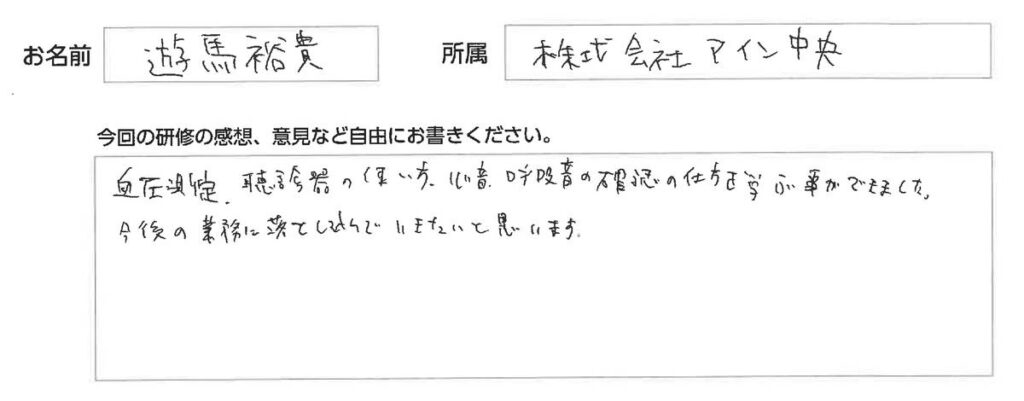 お名前 遊馬裕貴 所属 株式会社アイン中央
今回の研修の感想、意見など自由にお書きください。
血圧測定、聴診器の使い方、心音、呼吸音の確認の仕方を学ぶ事ができました。
今後の業務に落とし込んでいきたいと思います。